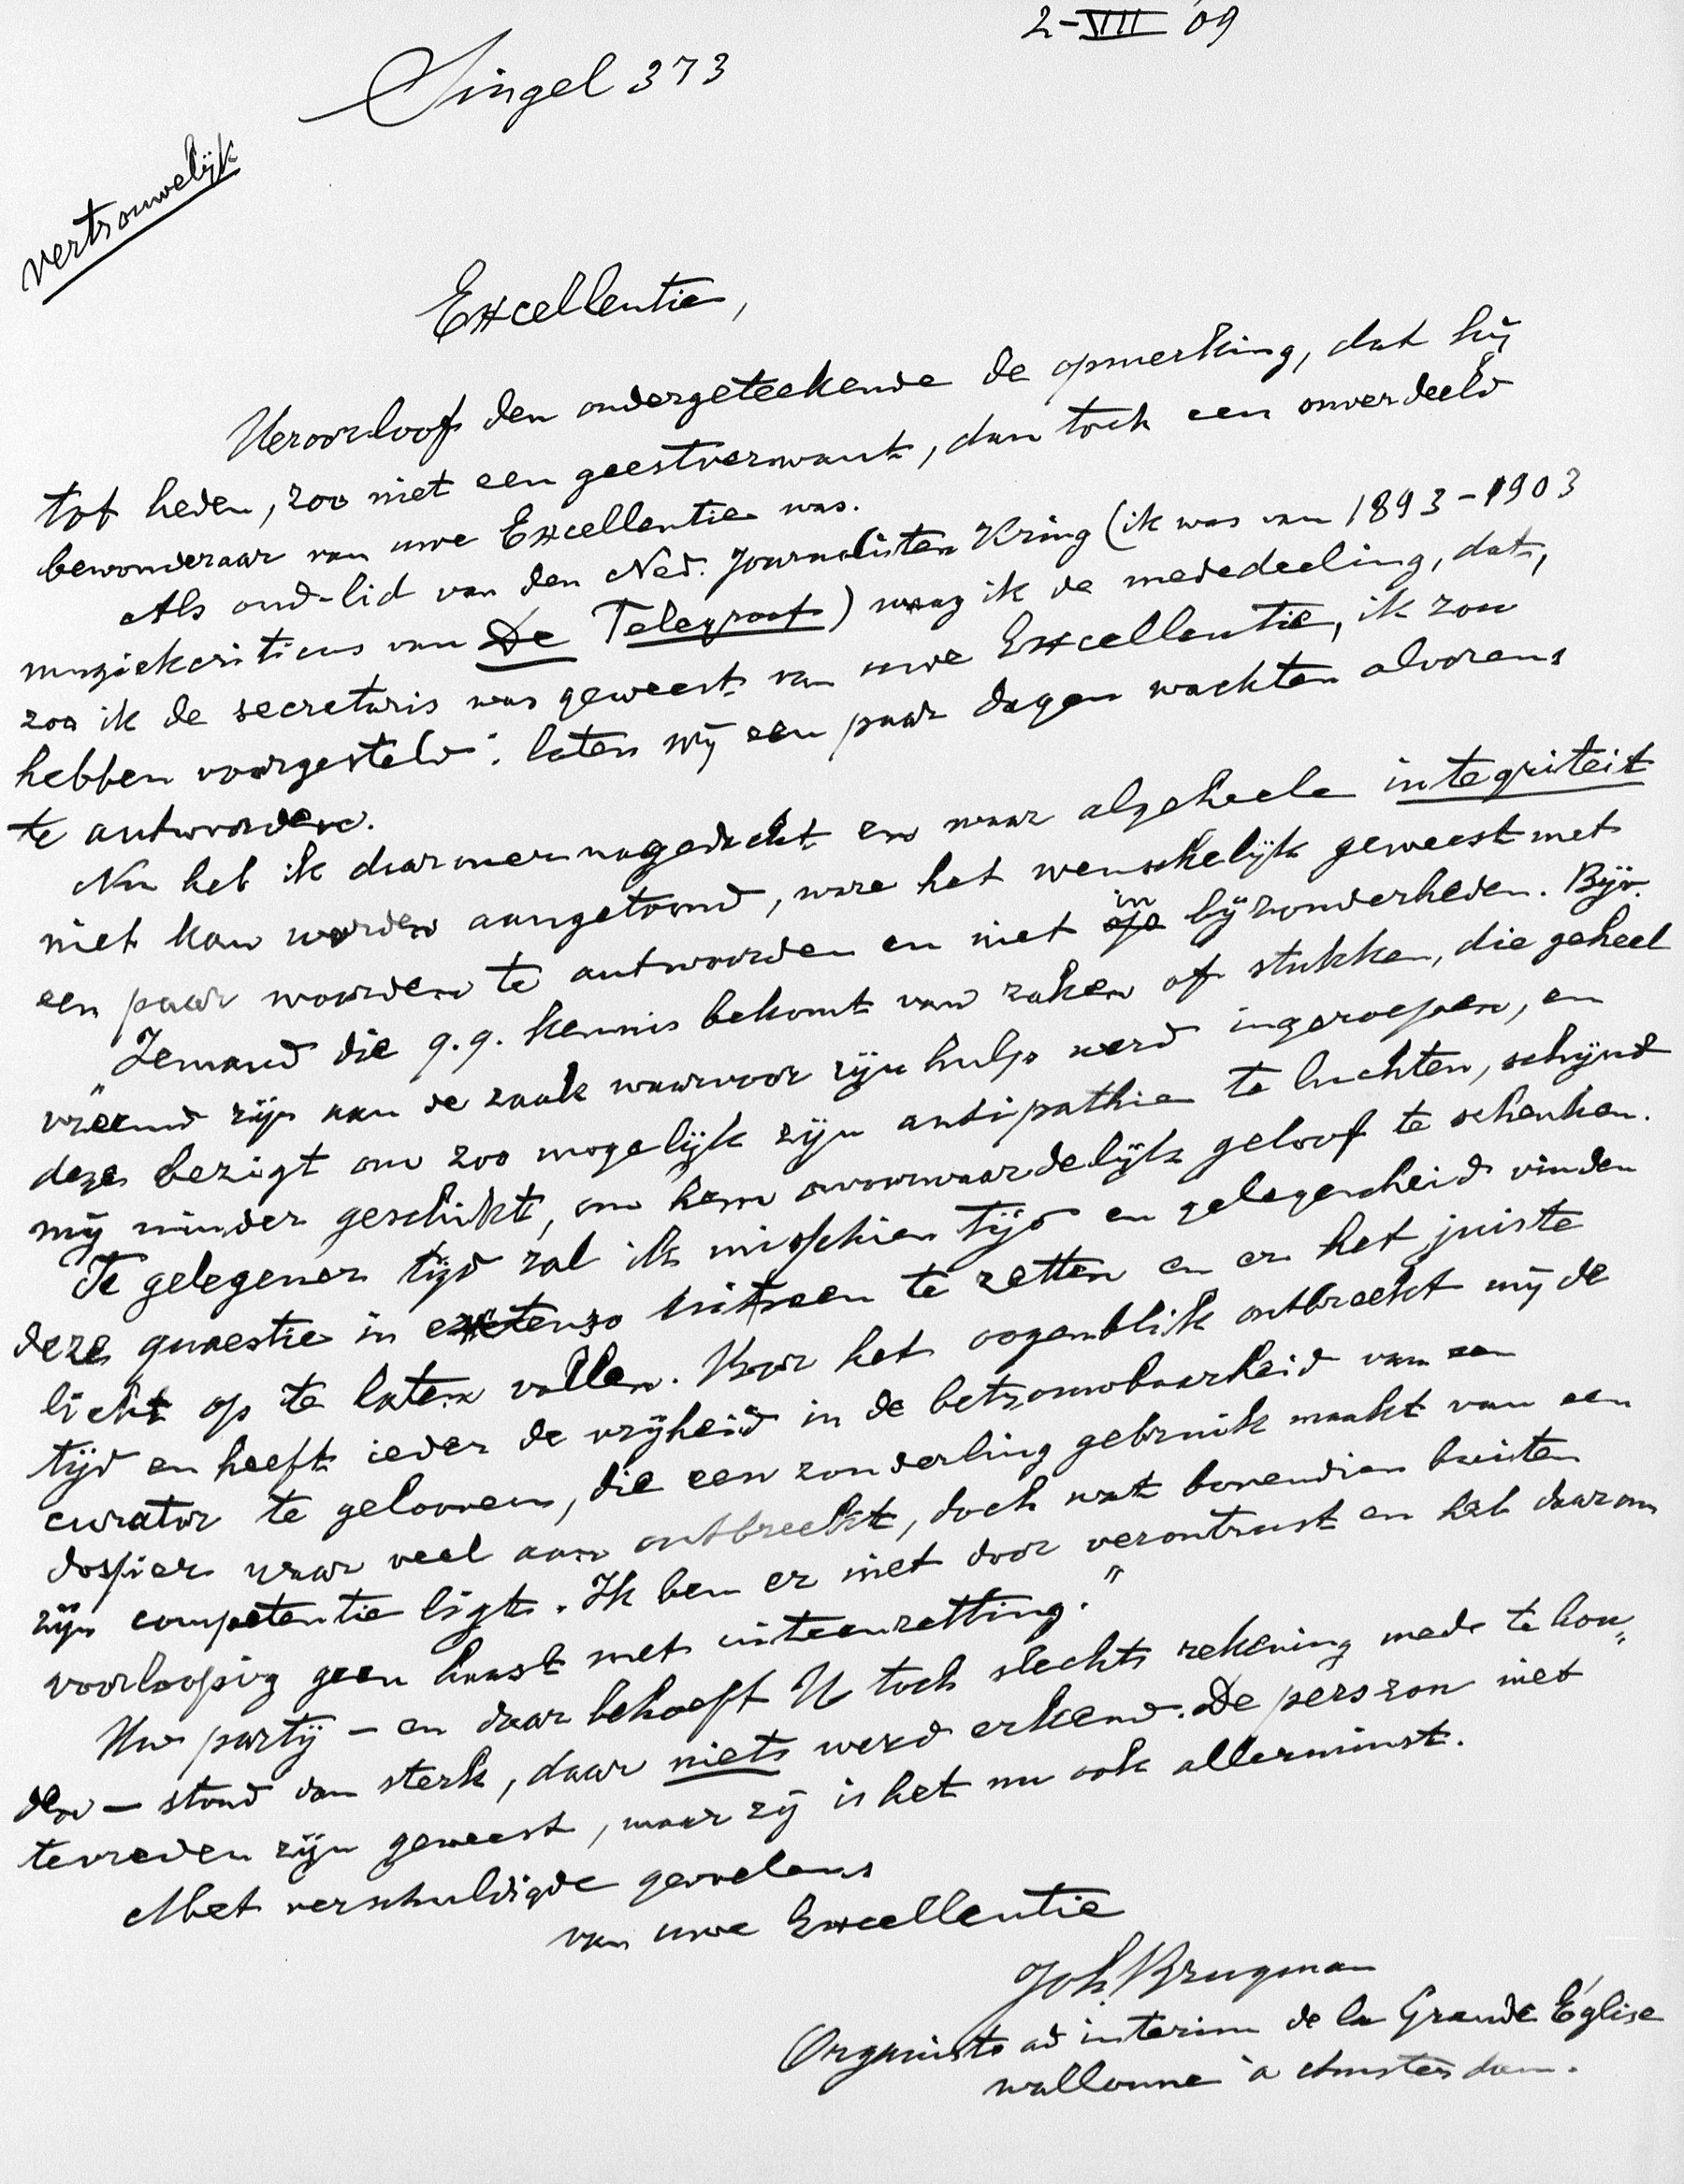 2-VII '09
Singel 373
vertrouwelijk
Excellentie,
Veroorloof den ondergeteekende de opmerking, dat hij
tot heden, zoo niet een geestverwant, dan toch een onverdeeld
bewonderaar van uwe Excellentie was.
Als oud-lid van den Ned. Journalisten Kring (ik was van 1893-1903
muziekcriticus van De Telegraaf) waag ik de mededeeling, dat,
zoo ik de secretaris was geweest van uwe Excellentie, ik zou
hebben voorgesteld: laten wij een paar dagen wachten alvorens
te antwoorden.
Nu heb ik daarover nagedacht en waar algeheele integriteit
niet kan worden aangetoond, ware het wenschelijk geweest met
een paar woorden te antwoorden en niet in bijzonderheden. Bijv.
"Iemand die q.q. kennis bekomt van zaken of stukken, die geheel
vreemd zijn aan de zaak waarvoor zijn hulp werd ingeroepen, en
deze bezigt om zoo mogelijk zijn antipathie te luchten, schijnt
mij minder geschikt, om hem onvoorwaardelijk geloof te schenken.
Te gelegener tijd zal ik misschien tijd en gelegenheid vinden
deze quaestie in extenso uiteen te zetten en er het juiste
licht op te laten vallen. Voor het oogenblik ontbreekt mij de
tijd en heeft ieder de vrijheid in de betrouwbaarheid van een
curator te gelooven, die een zonderling gebruik maakt van een
dossier waar veel aan ontbreekt, doch wat bovendien buiten
zijn competentie ligt. Ik ben er niet door verontrust en heb daarom
voorloopig geen haast met uiteenzetting."
Uw partij - en daar behoeft U toch slechts rekening mede te hou"
den - stond dan sterk, daar niets werd erkend. De pers zou niet
tevreden zijn geweest, maar zij is het nu ook allerminst.
Met verschuldigde gevoelens
van uwe Excellentie
Joh. Brugman
Organiste ad interim de la Grande Église
wallonne à Amsterdam.